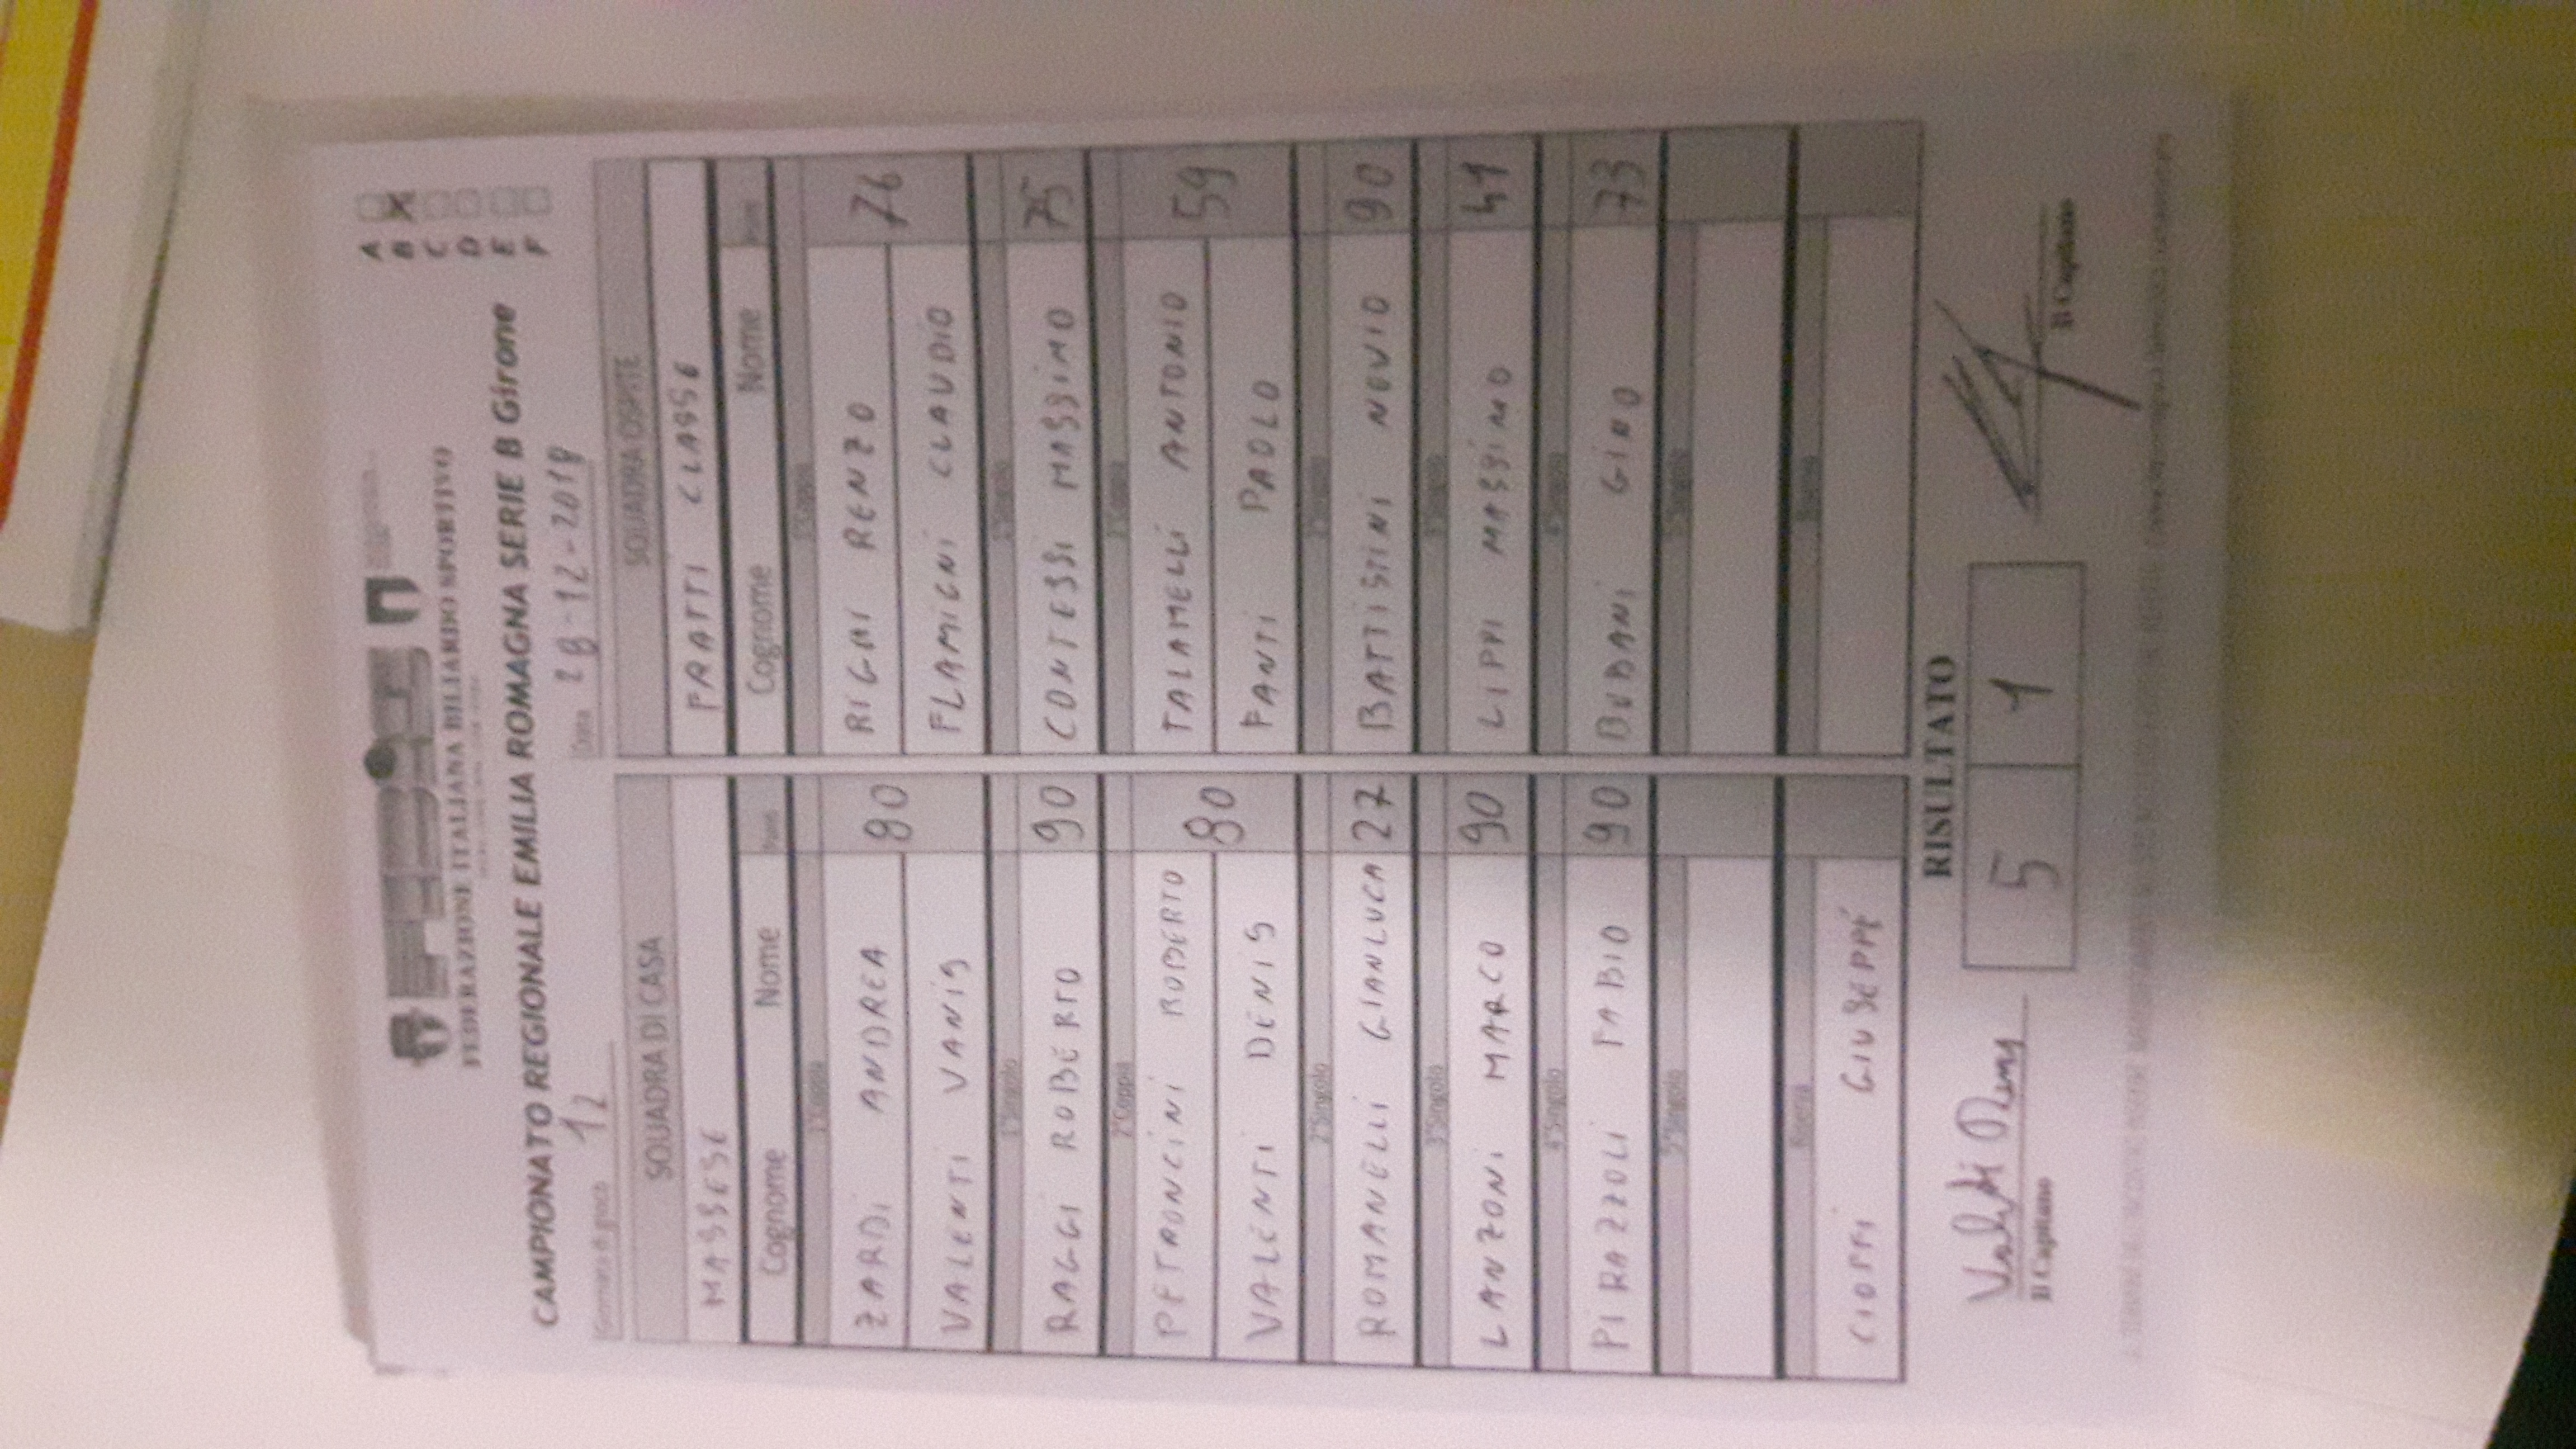 FEDERAZIONE ITALIANA BILIARDO SPORTIVO
CAMPIONATO REGIONALE EMILIA ROMAGNA SERIE B Girone
A
B X
C
D
E
F
Giornata di gioco 12 Data 28-12-2018
SQUADRA DI CASA SQUADRA OSPITE
MASSESE FRATTI CLASSE
Cognome Nome Punti Cognome Nome Punti
1°Coppia 1°Coppia
ZARDI ANDREA 80 RIGHI RENZO 76
VALENTI VANIS FLAMIGNI CLAUDIO
1°Singolo 1°Singolo
RAGGI ROBERTO 90 CONTESSI MASSIMO 75
2°Coppia 2°Coppia
PETRONCINI ROBERTO 80 TALAMELLI ANTONIO 59
VALENTI DENIS FANTI PAOLO
2°Singolo 2°Singolo
ROMANELLI GIANLUCA 27 BATTISTINI NOVIO 90
3°Singolo 3°Singolo
LANZONI MARCO 90 LIPPI MASSIMO 41
4°Singolo 4°Singolo
PIRAZZOLI FABIO 90 BUDANI GINO 73
5°Singolo 5°Singolo
Riserva Riserva
CIOFFI GIUSEPPE
RISULTATO
5 1
Il Capitano Il Capitano